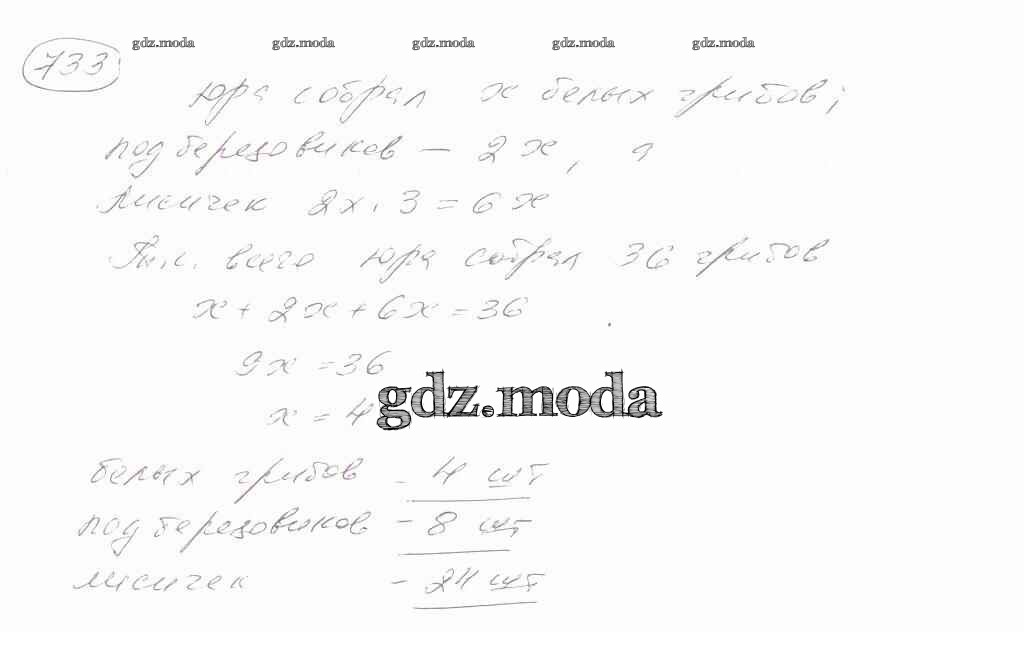 gdz.moda gdz.moda gdz.moda gdz.moda gdz.moda
733
Юра собрал x белых грибов;
подберезовиков — 2x, а
лисичек 2x · 3 = 6x
Т.к. всего Юра собрал 36 грибов
x + 2x + 6x = 36
9x = 36
x = 4
gdz.moda
белых грибов - 4 шт
подберезовиков - 8 шт
лисичек - 24 шт